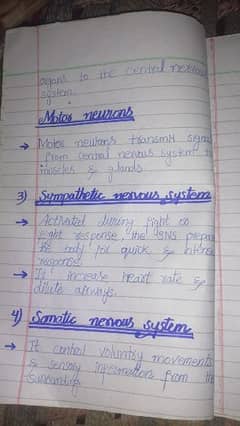 organs to the central nervous
system.
Motor neurons
→ Motor neurons transmit signal
from central nervous system to
muscles & glands.
3) Sympathetic nervous system
→ Activated during fight or
flight response, the SNS prepare
the body for quick & intense
response.
→ It increase heart rate &
dilate airways.
4) Somatic nervous system
→ It control voluntry movements
& sensory information from the
surrounding